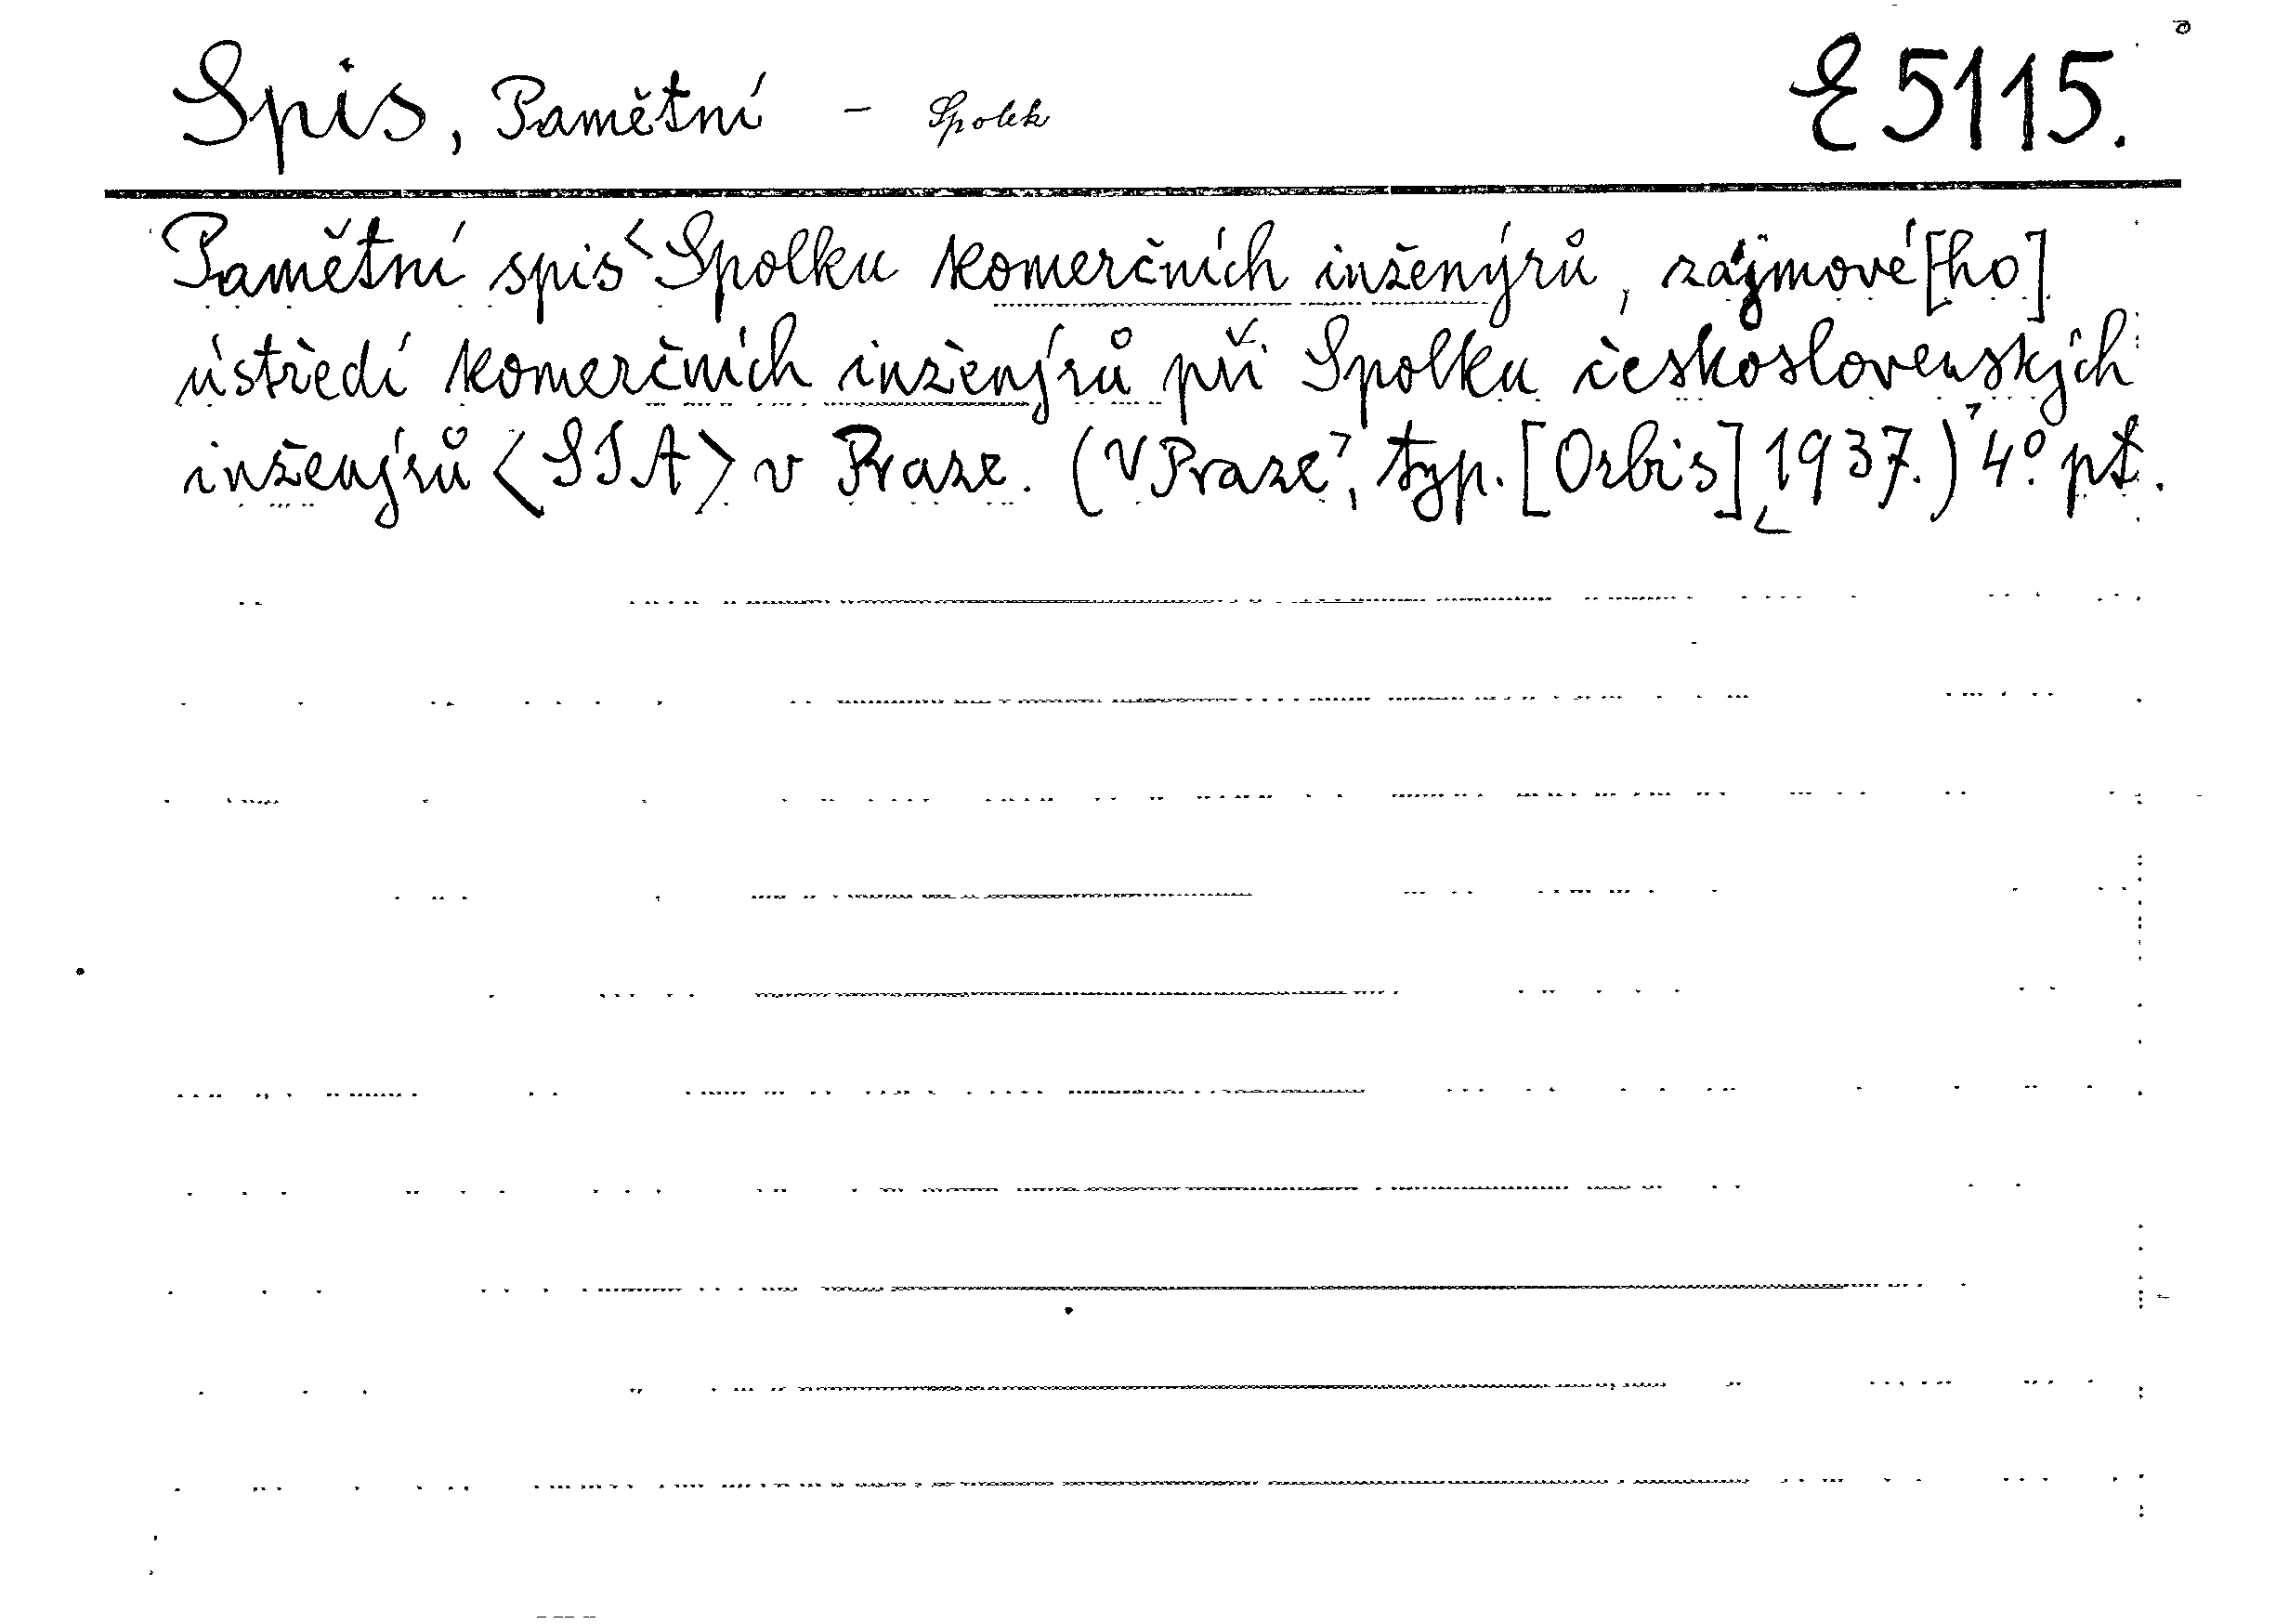 Spis, Pamětní – Spolek E 5115.
Pamětní spis Spolku komerčních inženýrů, zájmové[ho]
ústředí komerčních inženýrů při Spolku československých
inženýrů <SIA> v Praze. (V Praze, typ. [Orbis] 1937.) 4° př.